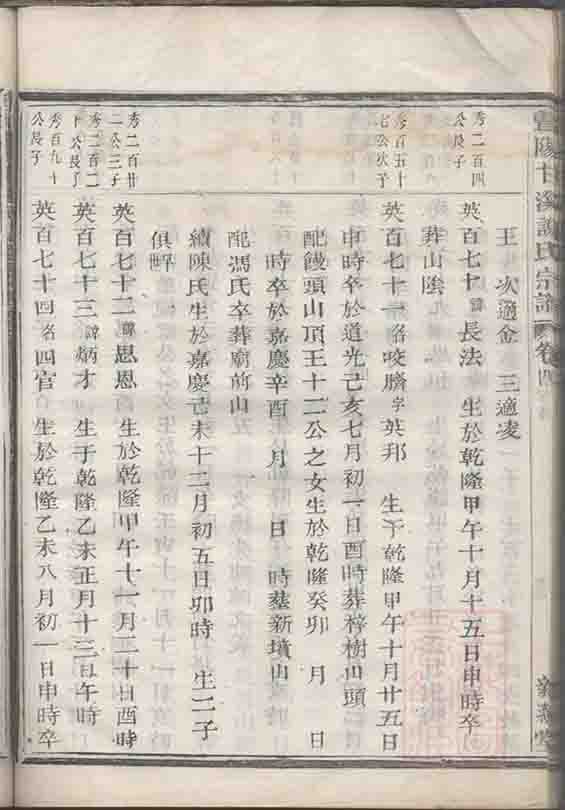 陽十溪譚氏宗譜 卷四
王 次適金 三適凌
秀二百四
公長子
英百七十諱長法 生於乾隆甲午十月十五日申時卒
葬山陰
秀百五十
七公次子
英百七十一名咬臍字英邦 生于乾隆甲午十月廿五日
申時卒於道光己亥七月初一日酉時葬梓樹山頭
配饅頭山頂王十二公之女生於乾隆癸卯 月 日
時卒於嘉慶辛酉 月 日 時葬新墳山
配馮氏卒葬廟前山
續陳氏生於嘉慶己未十二月初五日卯時 生二子
俱殤
秀二百廿
二公三子
英百七十二諱思恩 生於乾隆甲午十一月二十日酉時
秀二百二
十公長子
英百七十三諱炳才 生于乾隆乙未正月十三日午時
秀百九十
公長子
英百七十四名四官 生於乾隆乙未八月初一日申時卒